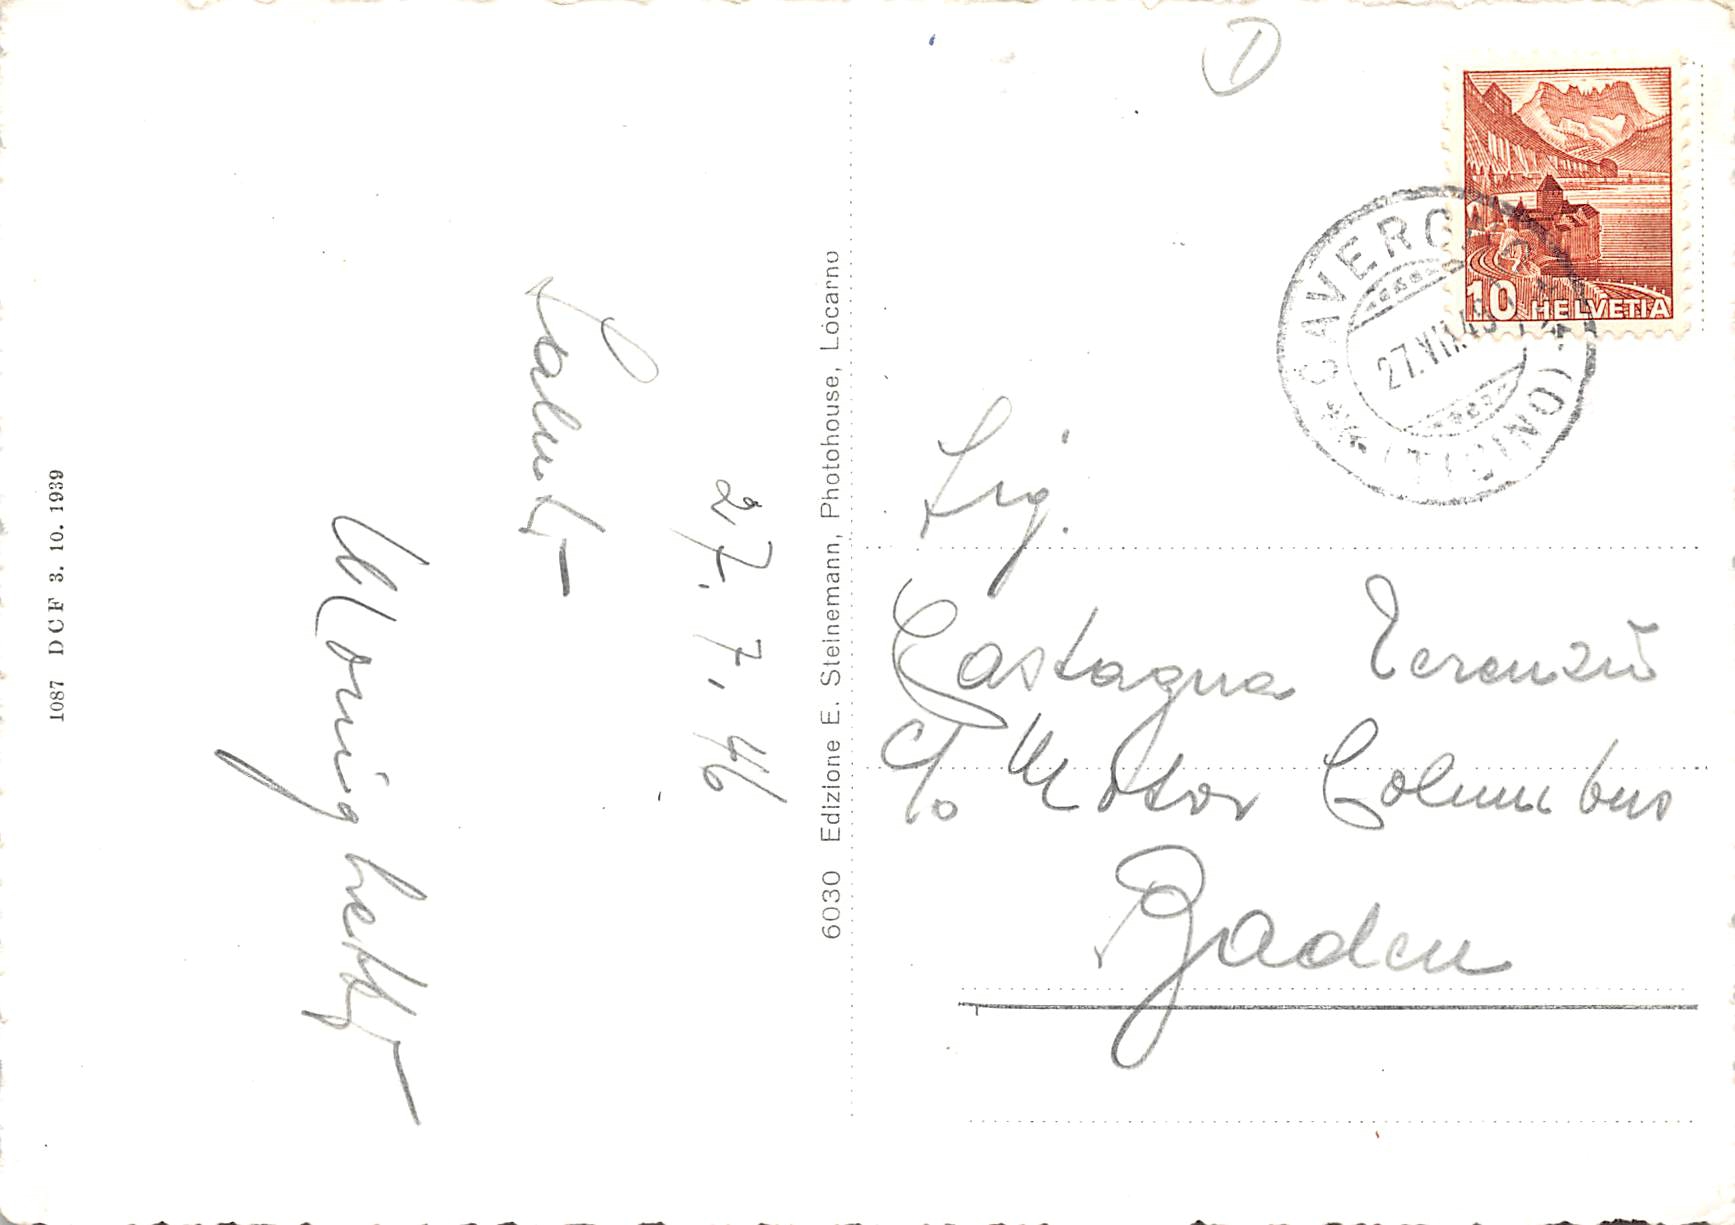 1087 DCF 3. 10. 1939
27. 7. 46
Saluti
Moninghetti
6030 Edizione E. Steinemann, Photohouse, Locarno
10 HELVETIA
CAVERGNO
(TICINO)
27.VII.46
Sig.
Castagna Terenzio
c/o Motor Columbus
Baden